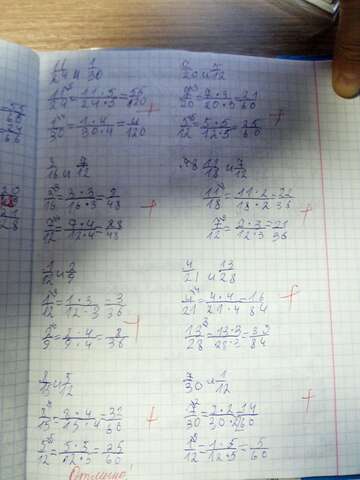 11/24 и 1/30
11/24 = 11·5/24·5 = 55/120
1/30 = 1·4/30·4 = 4/120
+
7/20 и 5/12
7/20 = 7·3/20·3 = 21/60
5/12 = 5·5/12·5 = 25/60
+
3/16 и 7/12
3/16 = 3·3/16·3 = 9/48
7/12 = 7·4/12·4 = 28/48
+
11/18 и 7/12
11/18 = 11·2/18·2 = 22/36
7/12 = 7·3/12·3 = 21/36
+
1/12 и 2/9
1/12 = 1·3/12·3 = 3/36
2/9 = 2·4/9·4 = 8/36
+
4/21 и 13/28
4/21 = 4·4/21·4 = 16/84
13/28 = 13·3/28·3 = 39/84
+
8/15 и 5/12
8/15 = 8·4/15·4 = 32/60
5/12 = 5·5/12·5 = 25/60
+
7/30 и 1/12
7/30 = 7·2/30·2 = 14/60
1/12 = 1·5/12·5 = 5/60
+
Отлично!